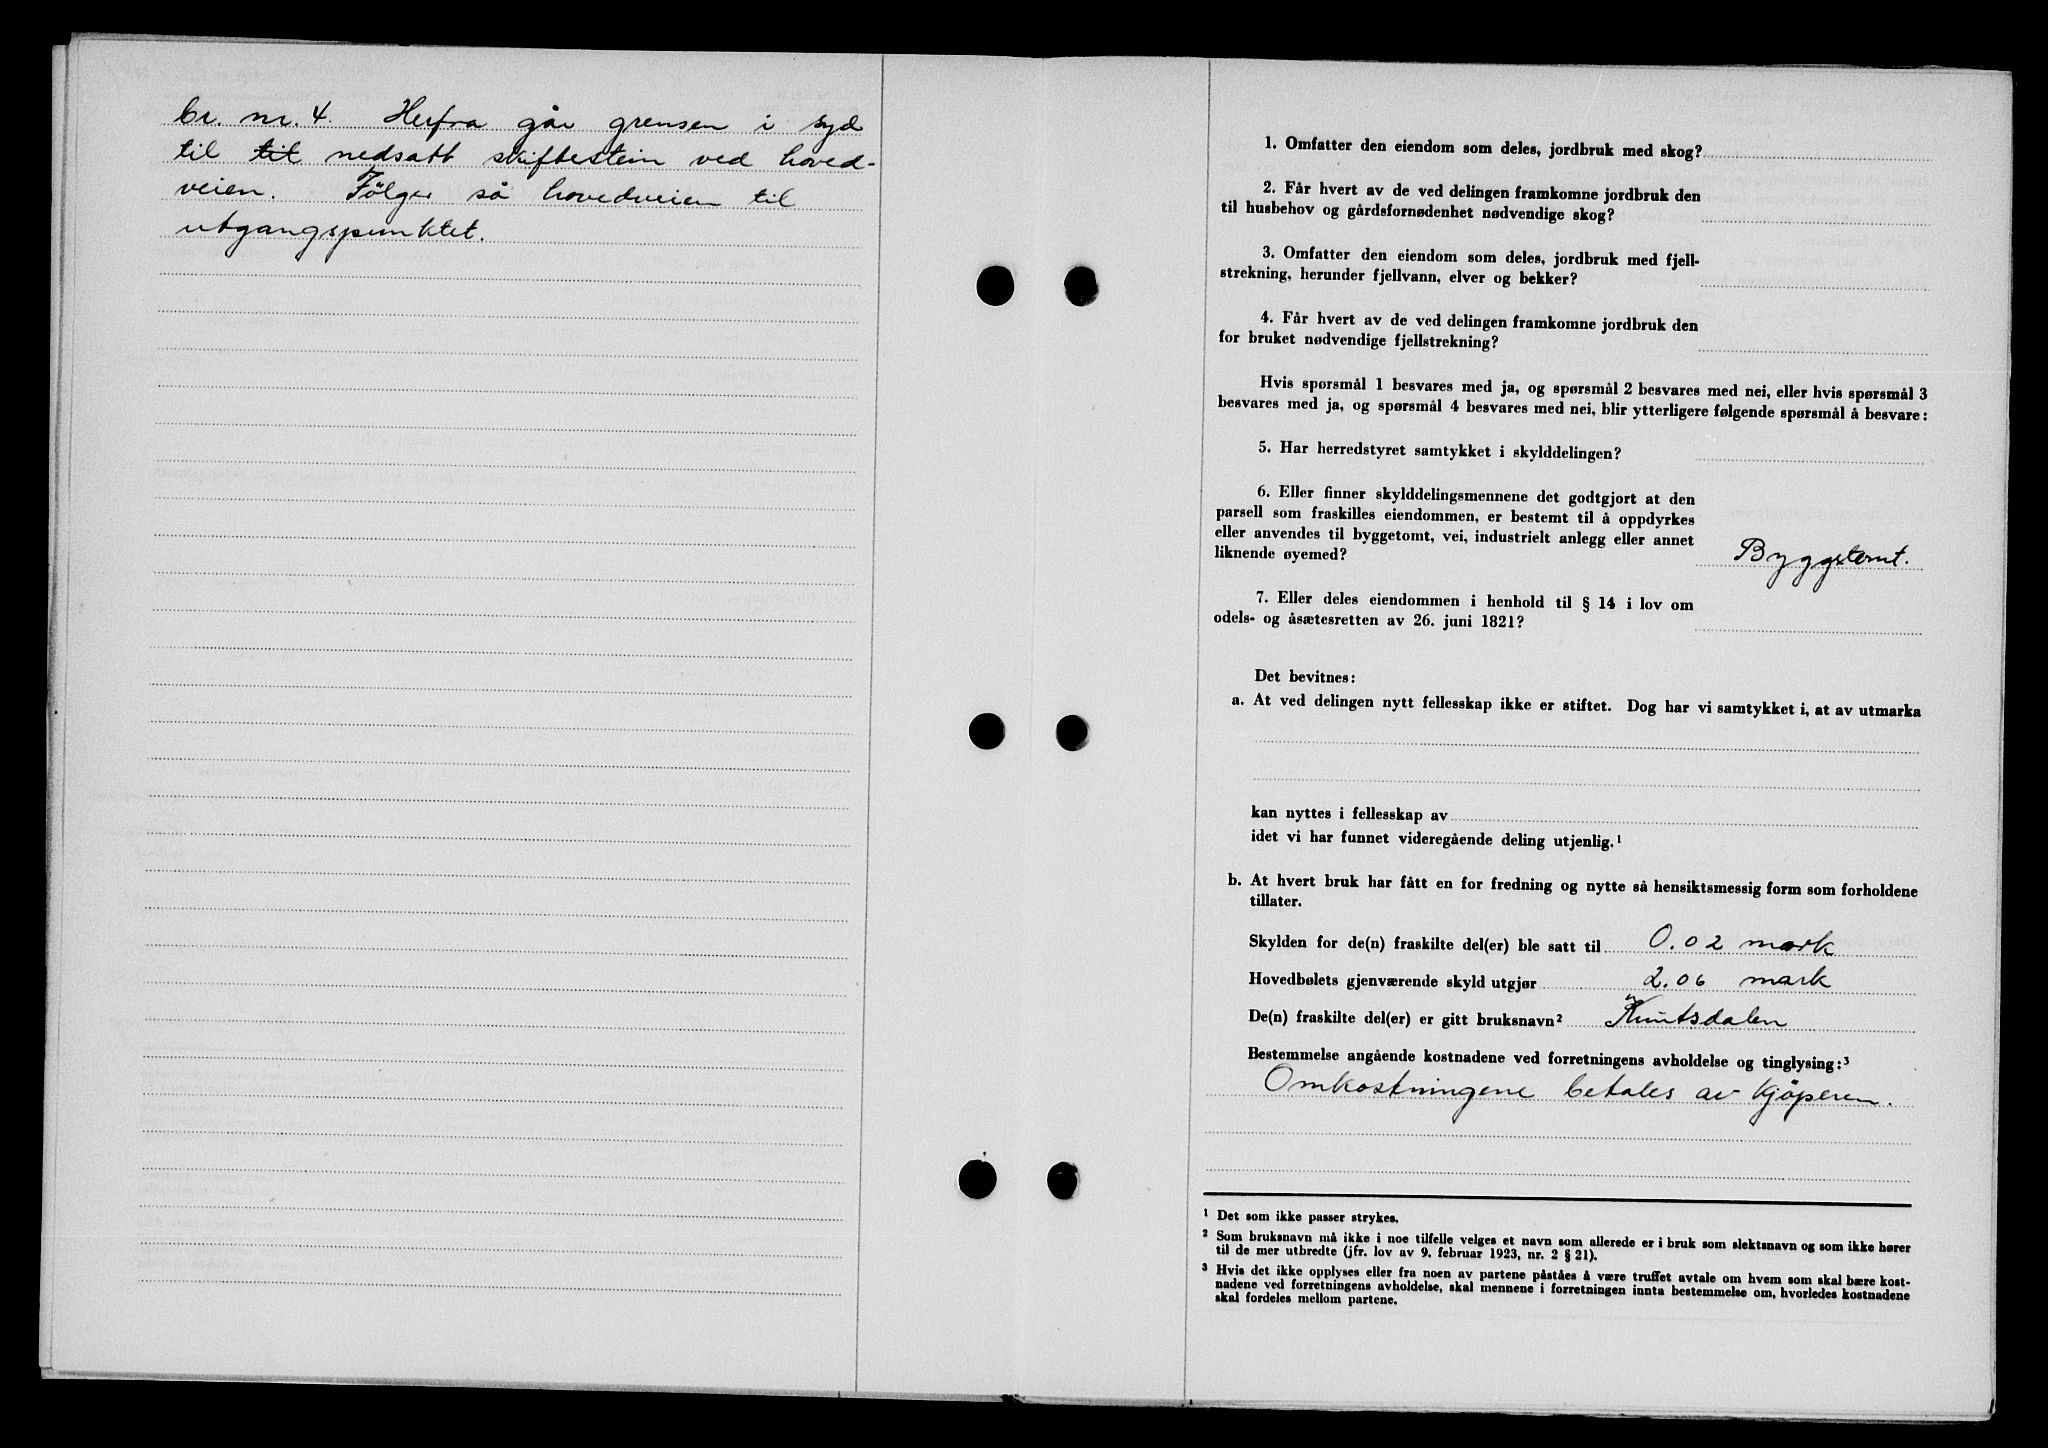 br. nr. 4. Herfra går grensen i syd
til til nedsatt skiftestein ved hoved-
veien. Følger så hovedveien til
utgangspunktet.
1. Omfatter den eiendom som deles, jordbruk med skog?
2. Får hvert av de ved delingen framkomne jordbruk den
til husbehov og gårdsfornødenhet nødvendige skog?
3. Omfatter den eiendom som deles, jordbruk med fjell-
strekning, herunder fjellvann, elver og bekker?
4. Får hvert av de ved delingen framkomne jordbruk den
for bruket nødvendige fjellstrekning?
Hvis spørsmål 1 besvares med ja, og spørsmål 2 besvares med nei, eller hvis spørsmål 3
besvares med ja, og spørsmål 4 besvares med nei, blir ytterligere følgende spørsmål å besvare:
5. Har herredstyret samtykket i skylddelingen?
6. Eller finner skylddelingsmennene det godtgjort at den
parsell som fraskilles eiendommen, er bestemt til å oppdyrkes
eller anvendes til byggetomt, vei, industrielt anlegg eller annet
liknende øyemed? Byggetomt.
7. Eller deles eiendommen i henhold til § 14 i lov om
odels- og åsætesretten av 26. juni 1821?
Det bevitnes:
a. At ved delingen nytt fellesskap ikke er stiftet. Dog har vi samtykket i, at av utmarka
kan nyttes i fellesskap av
idet vi har funnet videregående deling utjenlig.¹
b. At hvert bruk har fått en for fredning og nytte så hensiktsmessig form som forholdene
tillater.
Skylden for de(n) fraskilte del(er) ble satt til 0.02 mark
Hovedbølets gjenværende skyld utgjør 2.06 mark
De(n) fraskilte del(er) er gitt bruksnavn² Knutsdalen
Bestemmelse angående kostnadene ved forretningens avholdelse og tinglysing:³
Omkostningene betales av kjøperen.
¹ Det som ikke passer strykes.
² Som bruksnavn må ikke i noe tilfelle velges et navn som allerede er i bruk som slektsnavn og som ikke hører
til de mer utbredte (jfr. lov av 9. februar 1923, nr. 2 § 21).
³ Hvis det ikke opplyses eller fra noen av partene påståes å være truffet avtale om hvem som skal bære kost-
nadene ved forretningens avholdelse, skal mennene i forretningen innta bestemmelse om, hvorledes kostnadene
skal fordeles mellom partene.